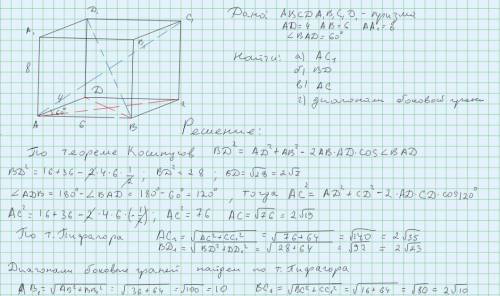 Дано: ABCDA₁B₁C₁D₁ - призма
AD=4 AB=6 AA₁=8
∠BAD=60°
Найти: а) AC₁
б) BD
в) AC
г) диагонали боковой грани
D₁
C₁
A₁
B₁
8
4
D
60°
A
6
B
Решение:
По теореме Косинусов BD² = AD² + AB² - 2AB·AD·cos∠BAD
BD² = 16+36 - 2·4·6·1/2 ; BD² = 28 ; BD = √28 = 2√7
∠ADB = 180° - ∠BAD = 180° - 60° = 120° , тогда AC² = AD² + CD² - 2·AD·CD·cos120°
AC² = 16+36 - 2·4·6·(-1/2) , AC² = 76 AC = √76 = 2√19
По т. Пифагора AC₁ = √AC²+CC₁² = √76+64 = √140 = 2√35
BD₁ = √BD²+DD₁² = √28+64 = √92 = 2√23
Диагонали боковых граней найдем по т. Пифагора
AB₁ = √AB²+BB₁² = √36+64 = √100 = 10 BC₁ = √BC²+CC₁² = √16+64 = √80 = 2√10